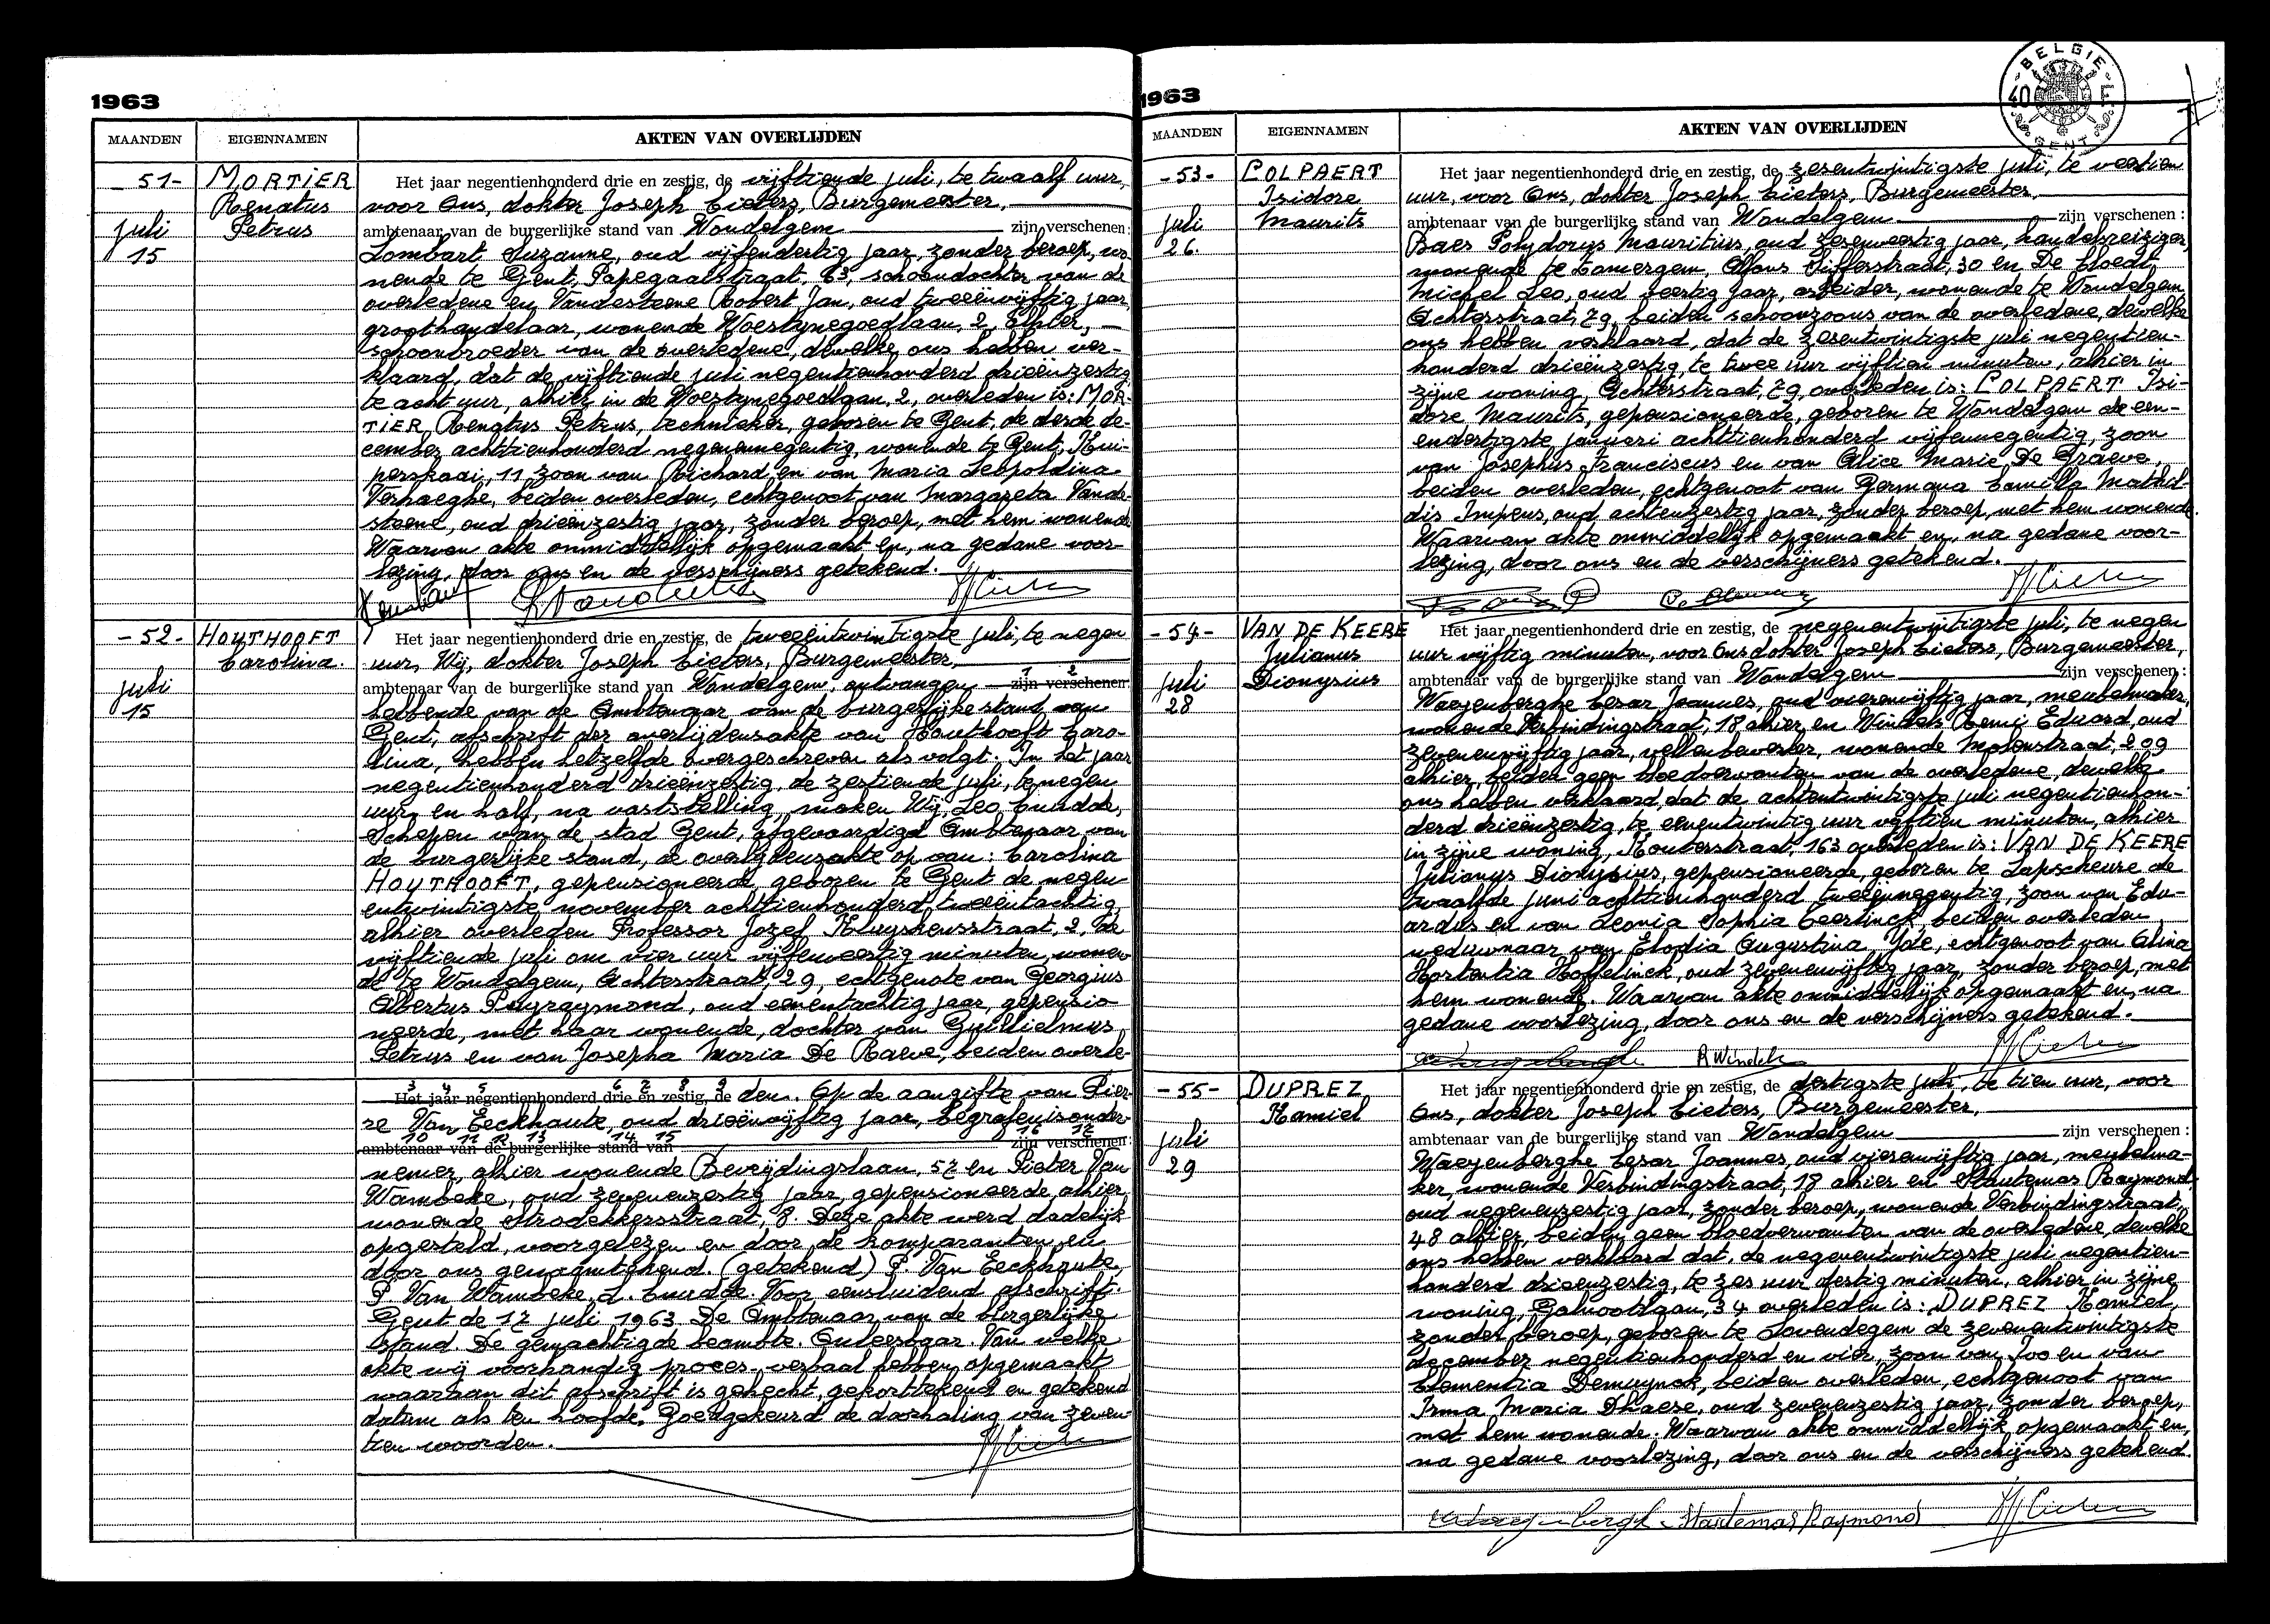 1963
MAANDEN EIGENNAMEN AKTEN VAN OVERLIJDEN
- 51 - MORTIER Renatus Petrus
juli 15
Het jaar negentienhonderd drie en zestig, de vijftiende juli, te twaalf uur,
voor Ons, dokter Joseph Cieters, Burgemeester,
ambtenaar van de burgerlijke stand van Wondelgem zijn verschenen:
Lombart Suzanne, oud vijfendertig jaar, zonder beroep, wo-
nende te Gent, Papegaaistraat, 63, schoondochter van de
overledene en Vandesteene Robert Jan, oud tweeënvijftig jaar,
groothandelaar, wonende Woestynegoedlaan, 2, alhier,
schoonbroeder van de overledene, dewelke ons hebben ver-
klaard, dat de vijftiende juli negentienhonderd drieënzestig
te acht uur, alhier in de Woestynegoedlaan, 2, overleden is: MOR-
TIER Renatus Petrus, technieker, geboren te Gent, de derde de-
cember achttienhonderd negenennegentig, wonende te Gent, Kui-
perskaai, 11 zoon van Richard en van Maria Leopoldina
Verhaeghe, beiden overleden, echtgenoot van Margareta Vande-
steene, oud drieënzestig jaar, zonder beroep, met hem wonende
Waarvan akte onmiddellijk opgemaakt en, na gedane voor-
lezing, door ons en de verschijners getekend.
- 52 - HOUTHOOFT Carolina.
juli 15
Het jaar negentienhonderd drie en zestig, de tweeëntwintigste juli, te negen
uur, Wij, dokter Joseph Cieters, Burgemeester,
ambtenaar van de burgerlijke stand van Wondelgem, ontvangen zijn verschenen: 1 2
hebbende van de Ambtenaar van de burgerlijke stand van
Gent, afschrift der overlijdensakte van Houthooft Caro-
lina, hebben hetzelfde overgeschreven als volgt: In het jaar
negentienhonderd drieënzestig, de zestiende juli, te negen
uur en half, na vaststelling, maken Wij, Leo Cnudde,
Schepen van de stad Gent, afgevaardigd Ambtenaar van
de burgerlijke stand, de overlijdensakte op van: Carolina
HOUTHOOFT, gepensioneerde, geboren te Gent de negen-
entwintigste november achttienhonderd tweeëntachtig,
alhier overleden Professor Jozef Kluyskensstraat, 2, de
vijftiende juli om vier uur vijfenveertig minuten, wonen-
de te Wondelgem, Achterstraat, 29, echtgenote van Georgius
Albertus Peyraymond, oud eenentachtig jaar, gepensio-
neerde, met haar wonende, dochter van Guillielmus
Petrus en van Josepha Maria De Raeve, beiden overle-
3 4 5 6 7 8 9
Het jaar negentienhonderd drie en zestig, de den. Op de aangifte van Pier-
re Van Eeckhaute, oud drieënvijftig jaar, begrafenisonder-
10 11 12 13 14 15 16 17
ambtenaar van de burgerlijke stand van zijn verschenen:
nemer, alhier wonende Bevrijdingslaan, 57 en Pieter Van
Wambeke, oud zevenenzestig jaar, gepensioneerde, alhier
wonende Strodekkersstraat, 8. Deze akte werd dadelijk
opgesteld, voorgelezen en door de komparanten en
door ons genaamtekend. (getekend) P. Van Eeckhaute,
P. Van Wambeke, L. Cnudde. Voor eensluidend afschrift.
Gent de 17 juli 1963. De Ambtenaar van de burgerlijke
stand. De gemachtigde beambte. Onleesbaar. Van welke
akte wij voorhandig proces-verbaal hebben opgemaakt
waaraan dit afschrift is gehecht, gekorttekend en getekend
datum als ten hoofde. Goedgekeurd de doorhaling van zeven-
tien woorden.
1963
BELGIE 40 F GENT
MAANDEN EIGENNAMEN AKTEN VAN OVERLIJDEN
- 53 - COLPAERT Isidore Maurits
juli 26.
Het jaar negentienhonderd drie en zestig, de zesentwintigste juli, te veertien
uur, voor Ons, dokter Joseph Cieters, Burgemeester,
ambtenaar van de burgerlijke stand van Wondelgem zijn verschenen:
Baes Polydorus Mauritius, oud zesenveertig jaar, handelsreiziger,
wonende te Lovergem, Alfons Sifferstraat, 30 en De Cloedt
Michel Leo, oud veertig jaar, arbeider, wonende te Wondelgem,
Achterstraat, 79, beiden schoonzoons van de overledene, dewelke
ons hebben verklaard, dat de zesentwintigste juli negentien-
honderd drieënzestig, te twee uur vijftien minuten, alhier in
zijne woning, Achterstraat, 79, overleden is: COLPAERT Isi-
dore Maurits, gepensioneerde, geboren te Wondelgem de een-
endertigste januari achttienhonderd vijfennegentig, zoon
van Josephus Franciscus en van Alice Marie De Graeve,
beiden overleden, echtgenoot van Germana Camilla Mathil-
dis Impens, oud achtenzestig jaar, zonder beroep, met hem wonende.
Waarvan akte onmiddellijk opgemaakt en, na gedane voor-
lezing, door ons en de verschijners getekend.
- 54 - VAN DE KEERE Julianus Dionysius
juli 28
Het jaar negentienhonderd drie en zestig, de negenentwintigste juli, te negen
uur vijftig minuten, voor Ons dokter Joseph Cieters, Burgemeester,
ambtenaar van de burgerlijke stand van Wondelgem zijn verschenen:
Waeyenberghe Cesar Joannes, oud vierenvijftig jaar, meubelmaker,
wonende Verbindingstraat, 18 alhier en Windels Remi Eduard, oud
zevenenvijftig jaar, vellenbewerker, wonende Molenstraat, 209
alhier, beiden geen bloedverwanten van de overledene, dewelke
ons hebben verklaard, dat de achtentwintigste juli negentienhon-
derd drieënzestig, te eenentwintig uur vijftien minuten, alhier
in zijne woning, Kouterstraat, 163 overleden is: VAN DE KEERE
Julianus Dionysius, gepensioneerde, geboren te Lapscheure de
twaalfde juni achttienhonderd tweeënnegentig, zoon van Edu-
ardus en van Leonia Sophia Geerlinck, beiden overleden,
weduwnaar van Elodia Augustina Yde, echtgenoot van Alina
Hortentia Hoffelinck, oud zevenenvijftig jaar, zonder beroep, met
hem wonende. Waarvan akte onmiddellijk opgemaakt en, na
gedane voorlezing, door ons en de verschijners getekend.
R Windels
- 55 - DUPREZ Kamiel
juli 29
Het jaar negentienhonderd drie en zestig, de dertigste juli, te tien uur, voor
Ons, dokter Joseph Cieters, Burgemeester,
ambtenaar van de burgerlijke stand van Wondelgem zijn verschenen:
Waeyenberghe Cesar Joannes, oud vierenvijftig jaar, meubelma-
ker, wonende Verbindingstraat, 18 alhier en Stautemas Raymond,
oud negenenzestig jaar, zonder beroep, wonende Verbindingstraat,
48 alhier, beiden geen bloedverwanten van de overledene, dewelke
ons hebben verklaard dat, de negenentwintigste juli negentien-
honderd drieënzestig, te zes uur dertig minuten, alhier in zijne
woning, Galvootlaan, 34 overleden is: DUPREZ Kamiel,
zonder beroep, geboren te Lovendegem de zevenentwintigste
december negentienhonderd en vier, zoon van Ivo en van
Clementia Demuynck, beiden overleden, echtgenoot van
Irma Maria Dhaese, oud zevenenzestig jaar, zonder beroep,
met hem wonende. Waarvan akte onmiddellijk opgemaakt en,
na gedane voorlezing, door ons en de verschijners getekend.
Stautemas Raymond